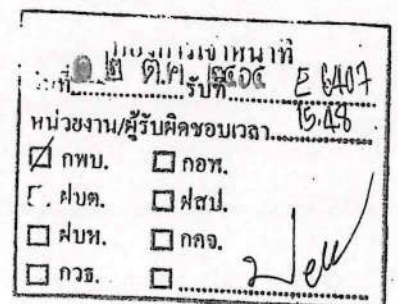 กองการเจ้าหน้าที่
วันที่ ๒ ต.ค. ๒๕๖๔ รับที่ E 6407
หน่วยงาน/ผู้รับผิดชอบเวลา 15.48
กพบ. กอท.
ฝบต. ฝสป.
ฝบท. กคจ.
กวธ.